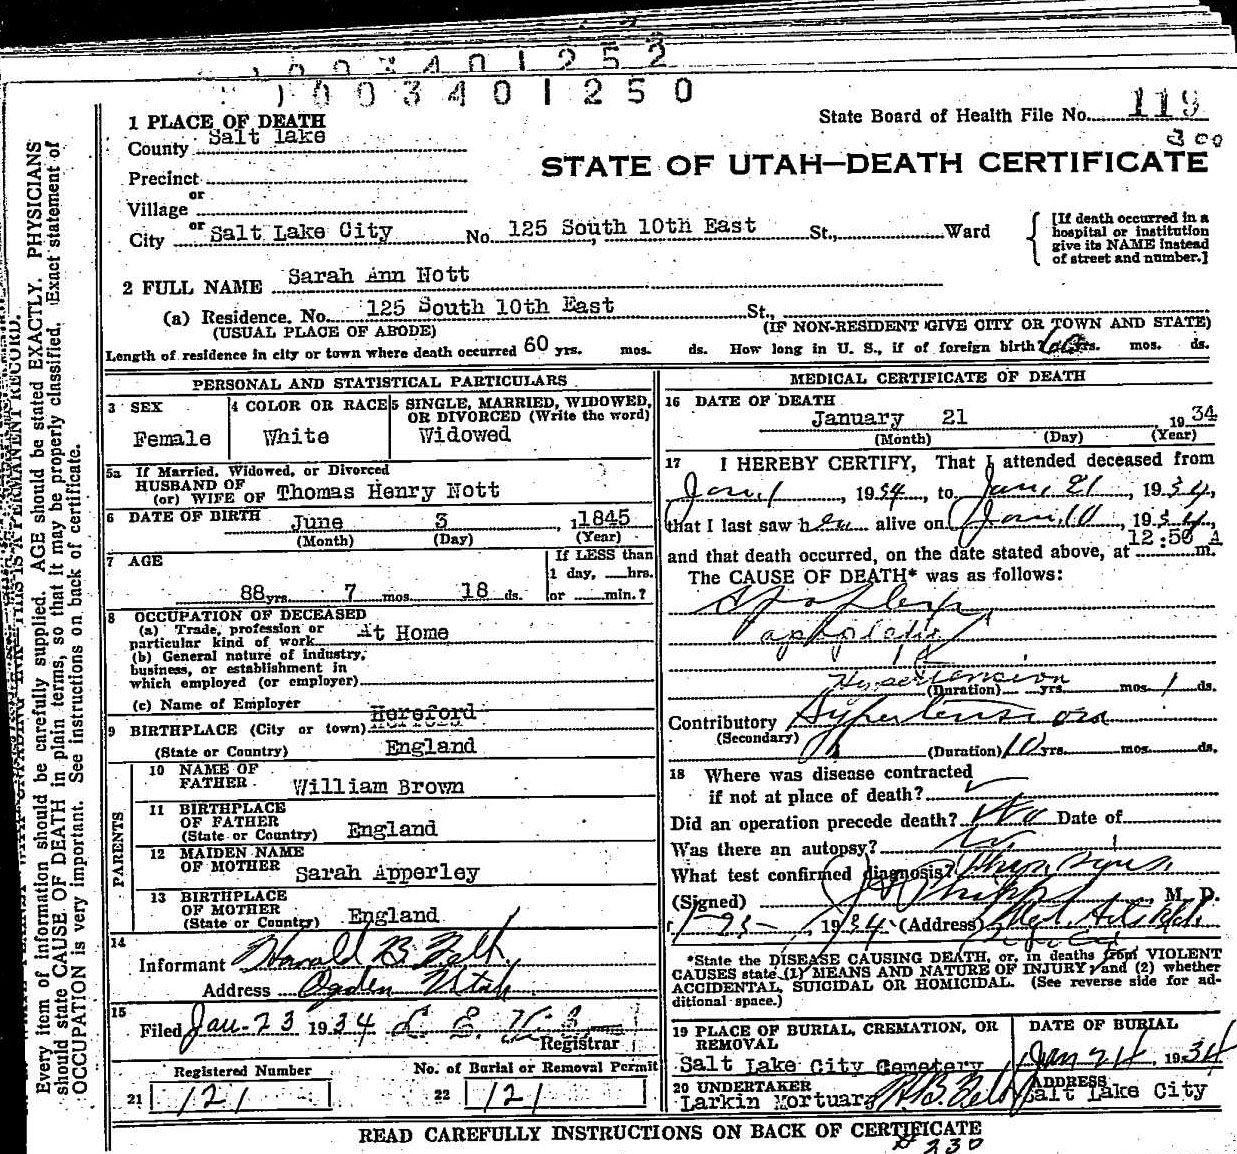 1003401252
1003401250
State Board of Health File No. 119
300
STATE OF UTAH—DEATH CERTIFICATE
1 PLACE OF DEATH
County Salt lake
Precinct
or
Village
or
City Salt Lake City No. 125 South 10th East St., Ward
[If death occurred in a hospital or institution give its NAME instead of street and number.]
2 FULL NAME Sarah Ann Nott
(a) Residence. No. 125 South 10th East St.,
(USUAL PLACE OF ABODE) (IF NON-RESIDENT GIVE CITY OR TOWN AND STATE)
Length of residence in city or town where death occurred 60 yrs. mos. ds. How long in U. S., if of foreign birth? 60 yrs. mos. ds.
PERSONAL AND STATISTICAL PARTICULARS
3 SEX
Female
4 COLOR OR RACE
White
5 SINGLE, MARRIED, WIDOWED, OR DIVORCED (Write the word)
Widowed
5a If Married, Widowed, or Divorced
HUSBAND OF
(or) WIFE OF Thomas Henry Nott
6 DATE OF BIRTH June 3, 1845
(Month) (Day) (Year)
7 AGE
88 yrs. 7 mos. 18 ds.
If LESS than
1 day, hrs.
or min.?
8 OCCUPATION OF DECEASED
(a) Trade, profession or
particular kind of work At Home
(b) General nature of industry,
business, or establishment in
which employed (or employer)
(c) Name of Employer
9 BIRTHPLACE (City or town) Hereford
(State or Country) England
PARENTS
10 NAME OF
FATHER William Brown
11 BIRTHPLACE
OF FATHER
(State or Country) England
12 MAIDEN NAME
OF MOTHER Sarah Apperley
13 BIRTHPLACE
OF MOTHER
(State or Country) England
14
Informant Harald B Felt
Address Ogden Utah
15
Filed Jan-23 1934
Registrar
Registered Number
21 121
No. of Burial or Removal Permit
22 121
MEDICAL CERTIFICATE OF DEATH
16 DATE OF DEATH
January 21 1934
(Month) (Day) (Year)
17 I HEREBY CERTIFY, That I attended deceased from
Jan, 1, 1934, to Jan, 21, 1934,
that I last saw her alive on Jan, 10, 1934,
and that death occurred, on the date stated above, at 12:50 A m.
The CAUSE OF DEATH* was as follows:
Apoplexy
Hypertension
(Duration) yrs. mos. 1 ds.
Contributory Hypertension
(Secondary)
(Duration) 10 yrs. mos. ds.
18 Where was disease contracted
if not at place of death?
Did an operation precede death? No Date of
Was there an autopsy?
What test confirmed diagnosis?
(Signed) M. D.
1-23-, 1934 (Address)
*State the DISEASE CAUSING DEATH, or, in deaths from VIOLENT
CAUSES state (1) MEANS AND NATURE OF INJURY; and (2) whether
ACCIDENTAL, SUICIDAL OR HOMICIDAL. (See reverse side for ad-
ditional space.)
19 PLACE OF BURIAL, CREMATION, OR
REMOVAL
Salt Lake City Cemetery
DATE OF BURIAL
Jan 24 1934
20 UNDERTAKER
Larkin Mortuary
ADDRESS
Salt Lake City
READ CAREFULLY INSTRUCTIONS ON BACK OF CERTIFICATE
# 230
Every item of information should be carefully supplied. AGE should be stated EXACTLY. PHYSICIANS
should state CAUSE OF DEATH in plain terms, so that it may be properly classified. Exact statement of
OCCUPATION is very important. See instructions on back of certificate.